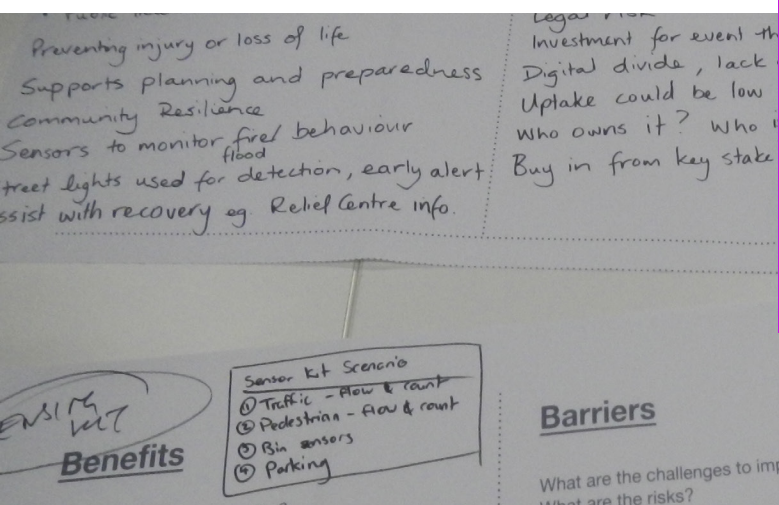 Preventing injury or loss of life
Supports planning and preparedness
Community Resilience
Sensors to monitor fire/ behaviour
flood
treet lights used for detection, early alert
ssist with recovery eg. Relief Centre info.
Legal risk
Investment for event th
Digital divide, lack
Uptake could be low
Who owns it? Who
Buy in from key stake
ENSING
KIT
Benefits
Sensor Kit Scenario
① Traffic - flow & count
② Pedestrian - flow & count
③ Bin sensors
④ Parking
Barriers
What are the challenges to imp
What are the risks?